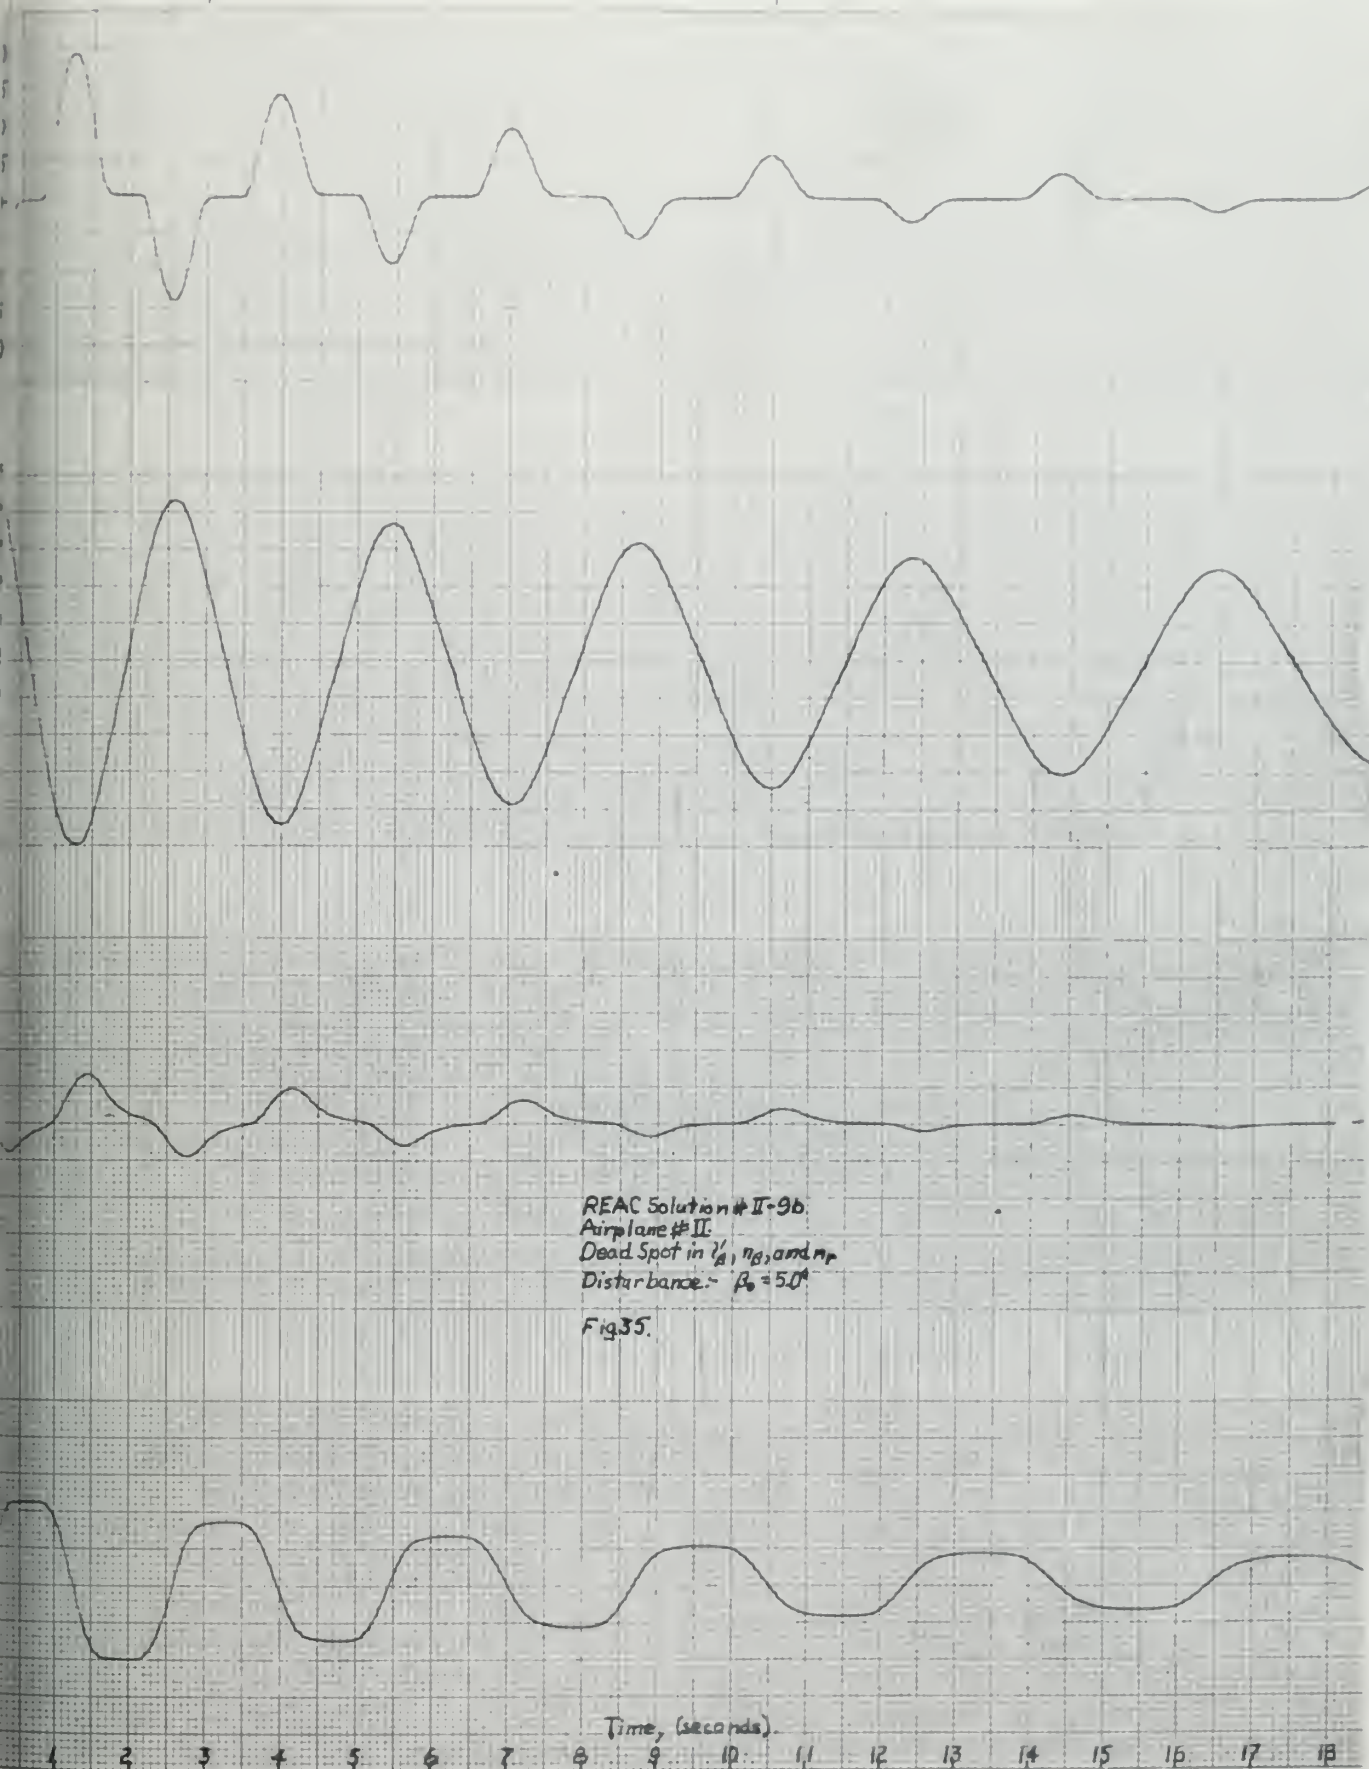 REAC Solution # II-9b.
Airplane # II.
Dead Spot in l'β, nβ, and nr
Disturbance:- β₀ = 5.0°
Fig 35.
Time, (seconds).
1 2 3 4 5 6 7 8 9 10 11 12 13 14 15 16 17 18